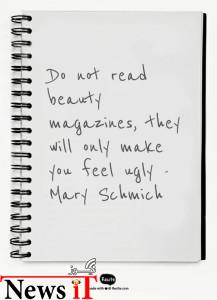 Do not read
beauty
magazines, they
will only make
you feel ugly -
Mary Schmich
Recite
made with recite.com
گـــیوز
News iT